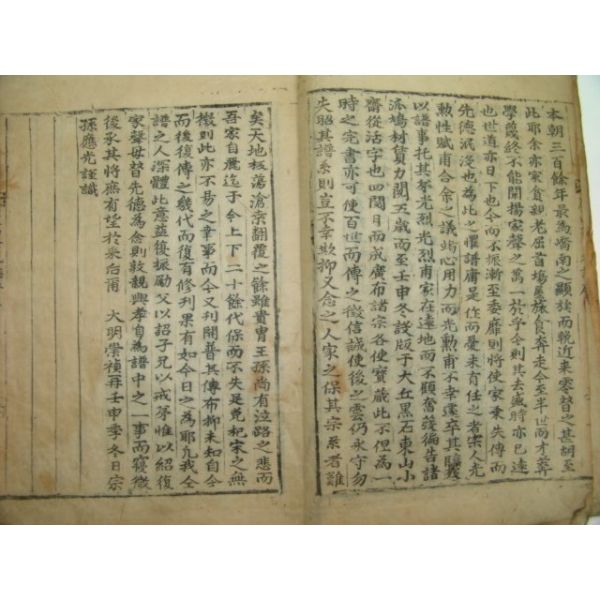 本朝三百餘年最為嶠南之顯族而輓近來寒替之甚胡至
此耶余亦家貧親老屈首場屋旅食奔走今至半世而才葬
學蔑終不能開揚家聲之萬一於乎今則其去盛時亦已遠
也世道亦日下也今而不振漸至委靡則將使家乘失傳而
先德泯沒也為此之懼譜庸是作而憂未有任之者宗人光
勲性賦甫合余之議竭心用力而光勲甫不幸遽卒其
以譜事托其孥光烈光烈甫家在遠地而不顧奮發徧告諸
派鳩材貲力閱五歲而至壬申冬設版于大丘黑石東山小
齋從活字也四閱月而成廣布諸宗各使寶藏此不但為一
時之完書亦可使百世而傳之徵信誠使後之雲仍永守勿
失昭其譜系則豈不幸歟抑又念之人家之保其宗系者難
矣天地板蕩滄桑翻覆之餘雖貴胄王孫尚有泣路之悲而
吾家自麗迄于今上下二十餘代保而不失是免杞宋之無
徵則此亦不易之幸事而今又刊開普其傳布抑未知自今
而後復傳之幾代而復有修刊果有如今日之為耶凡我仝
譜之人深體此意益復振勵父以詔子兄以戒弟惟以紹復
家聲毋替先德為念則敦親興孝自為譜中之一事而寢微
後承其將庶有望於来否爾 大明崇禎再壬申季冬日宗
孫應光謹識